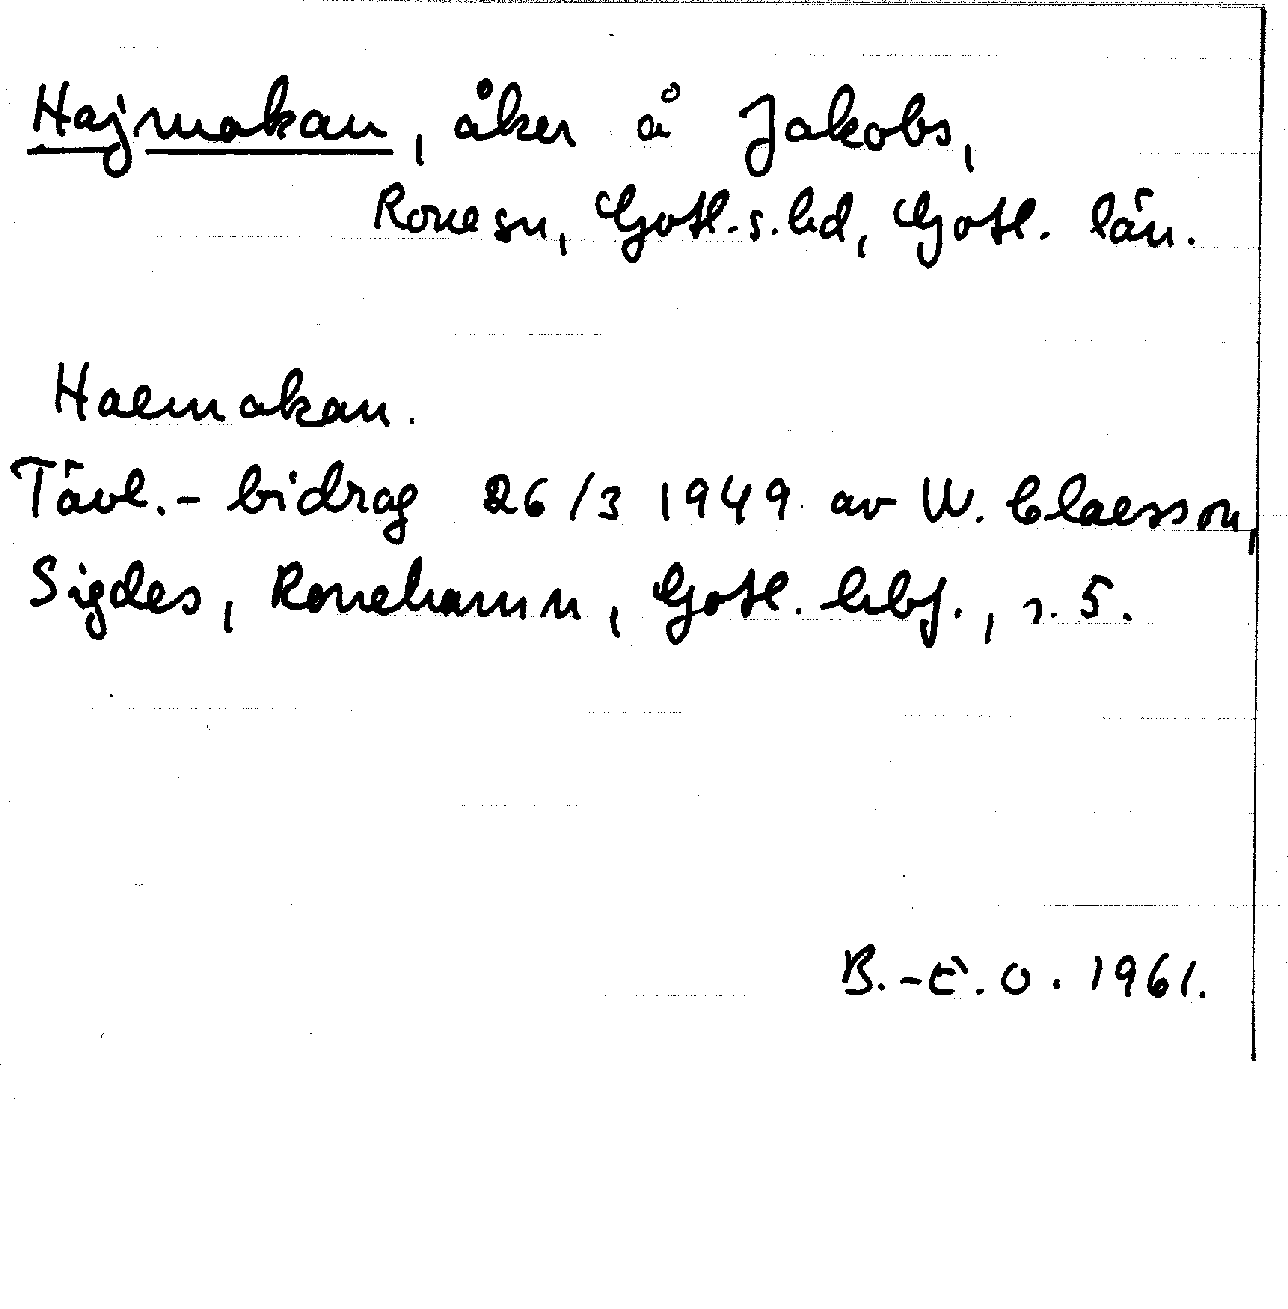 Hajmakan, åker å Jakobs,
Rone sn, Gotl. s. hd, Gotl. län.
Haemakan.
Tävl.- bidrag 26/3 1949 av W. Claesson,
Sigdes, Ronehamn, Gotl. hbf., s. 5.
B.-E. O. 1961.